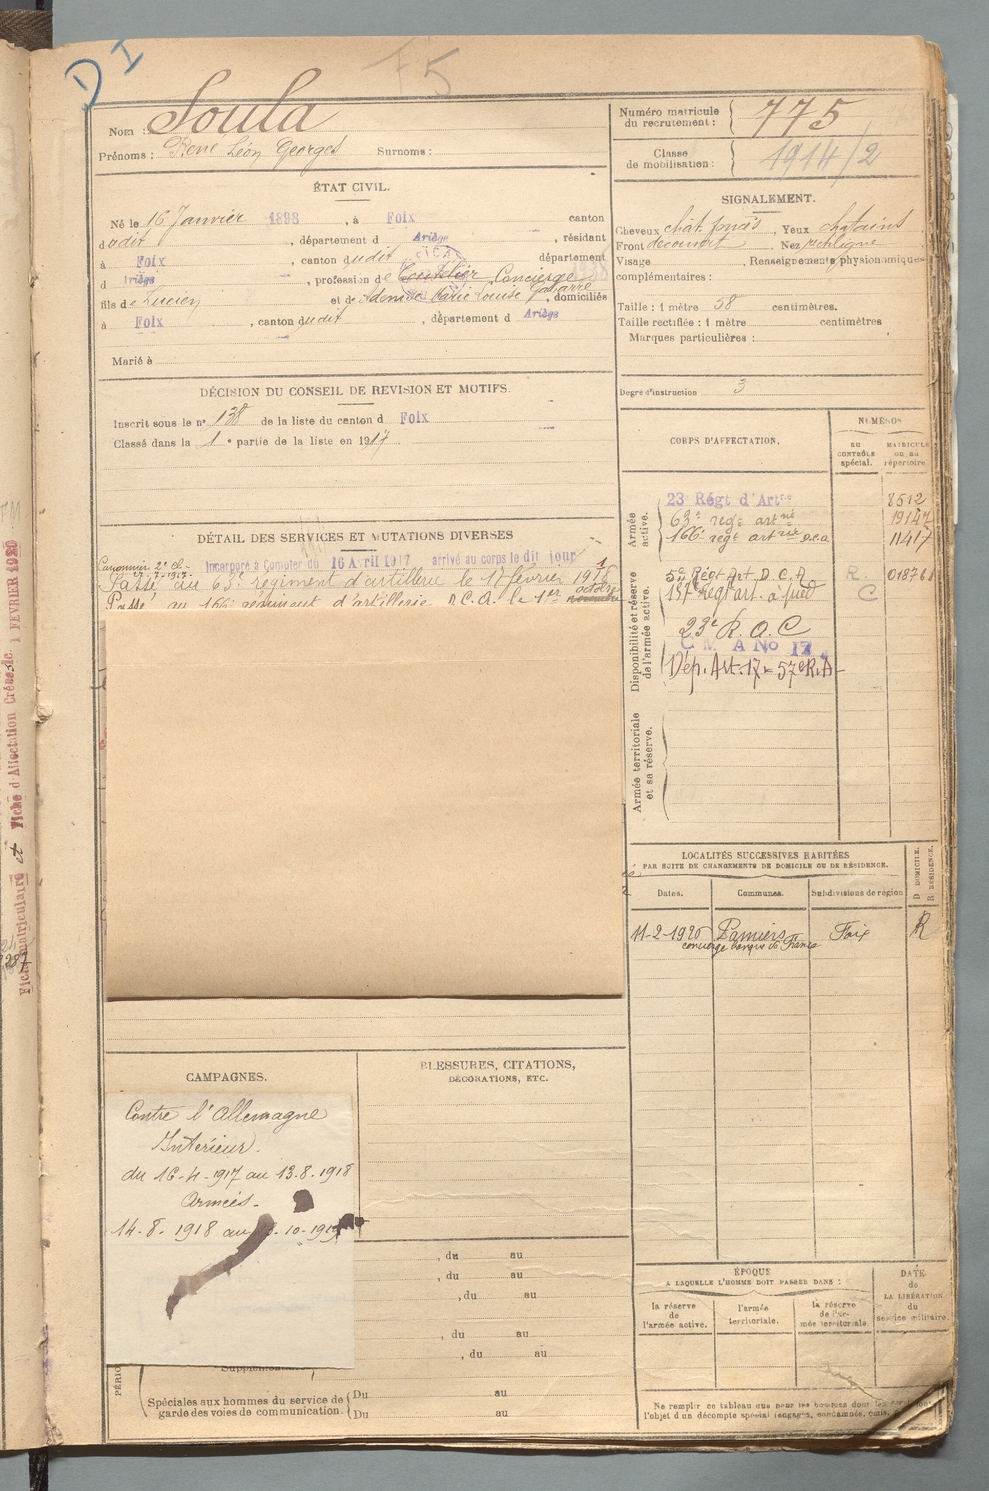 D I
F5
Nom : Soula
Prénoms : René Léon Georges Surnoms :
Numéro matricule du recrutement : 775
Classe de mobilisation : 1914/2
ÉTAT CIVIL.
Né le 16 Janvier 1893, à Foix canton
dudit, département d Ariège, résidant
à Foix, canton dudit département
d Ariège, profession de Coutelier Concierge
fils de Lucien et de Marie Louise, domiciliés
à Foix, canton dudit, département d Ariège
Marié à
SIGNALEMENT.
Cheveux chât. foncés, Yeux châtains
Front découvert, Nez rectiligne
Visage, Renseignements physionomiques
complémentaires :
Taille : 1 mètre 58 centimètres.
Taille rectifiée : 1 mètre centimètres
Marques particulières :
Degré d'instruction 3
DÉCISION DU CONSEIL DE REVISION ET MOTIFS.
Inscrit sous le n° 138 de la liste du canton d Foix
Classé dans la 1e partie de la liste en 1917.
DÉTAIL DES SERVICES ET MUTATIONS DIVERSES
Incorporé à Compter du 16 Avril 1917 arrivé au corps le dit jour
Canonnier 2e cl.
Passé au 63e régiment d'artillerie le 17 février 1918
Passé au 166e régiment d'artillerie D.C.A. le 1er octobre novembre
CORPS D'AFFECTATION.
NUMÉROS
AU CONTRÔLE spécial.
MATRICULE ou au répertoire
Armée active.
23e Régt d'Artrie 8512
63e regt artrie 19147
166e regt artrie D.C.A 11417
Disponibilité et réserve de l'armée active.
5e Régt Art. D.C.A R.
Régt art. à pied C
23e R.O.C
C M A No 17
Dép. Art. 17 - 57e R.A
Armée territoriale et sa réserve.
LOCALITÉS SUCCESSIVES HABITÉES
PAR SUITE DE CHANGEMENTS DE DOMICILE OU DE RÉSIDENCE.
Dates. Communes. Subdivisions de région D DOMICILE. R RÉSIDENCE.
11-2-1920 Pamiers Foix R
concierge banque de France
CAMPAGNES.
Contre l'Allemagne
Intérieur.
du 16-4-1917 au 13.8.1918
Armées.
14.8.1918 au 10-1919
BLESSURES, CITATIONS,
DÉCORATIONS, ETC.
, du au
, du au
, du au
, du au
, du au
Spéciales aux hommes du service de garde des voies de communication. Du au
Du au
ÉPOQUE
A LAQUELLE L'HOMME DOIT PASSER DANS :
la réserve de l'armée active.
l'armée territoriale.
la réserve de l'armée territoriale.
DATE de LA LIBÉRATION du service militaire.
Ne remplir ce tableau que pour les hommes dont les
l'objet d'un décompte spécial (engagés, condamnés, omis,
Fiche matriculaire et Fiche d'Affectation Créées le 1 FEVRIER 1930